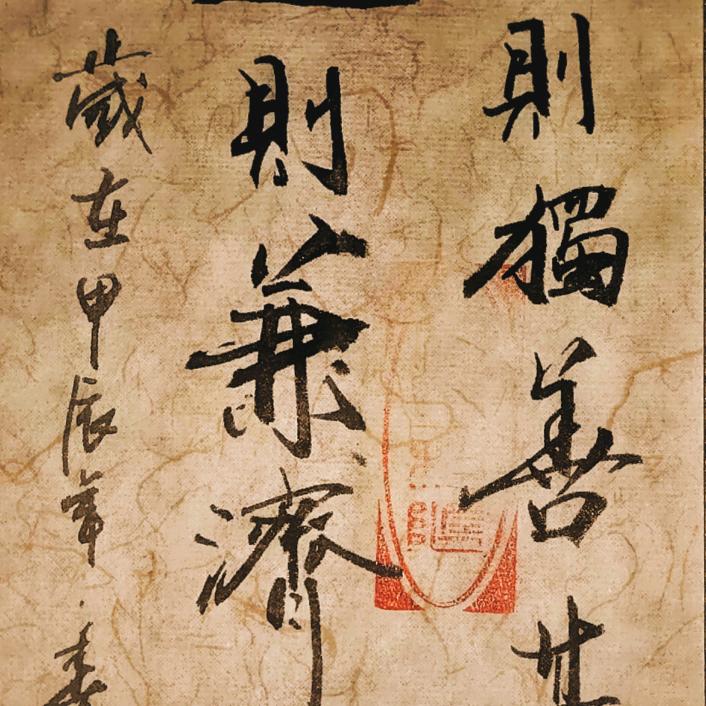 則獨善其
則兼濟
歲在甲辰年